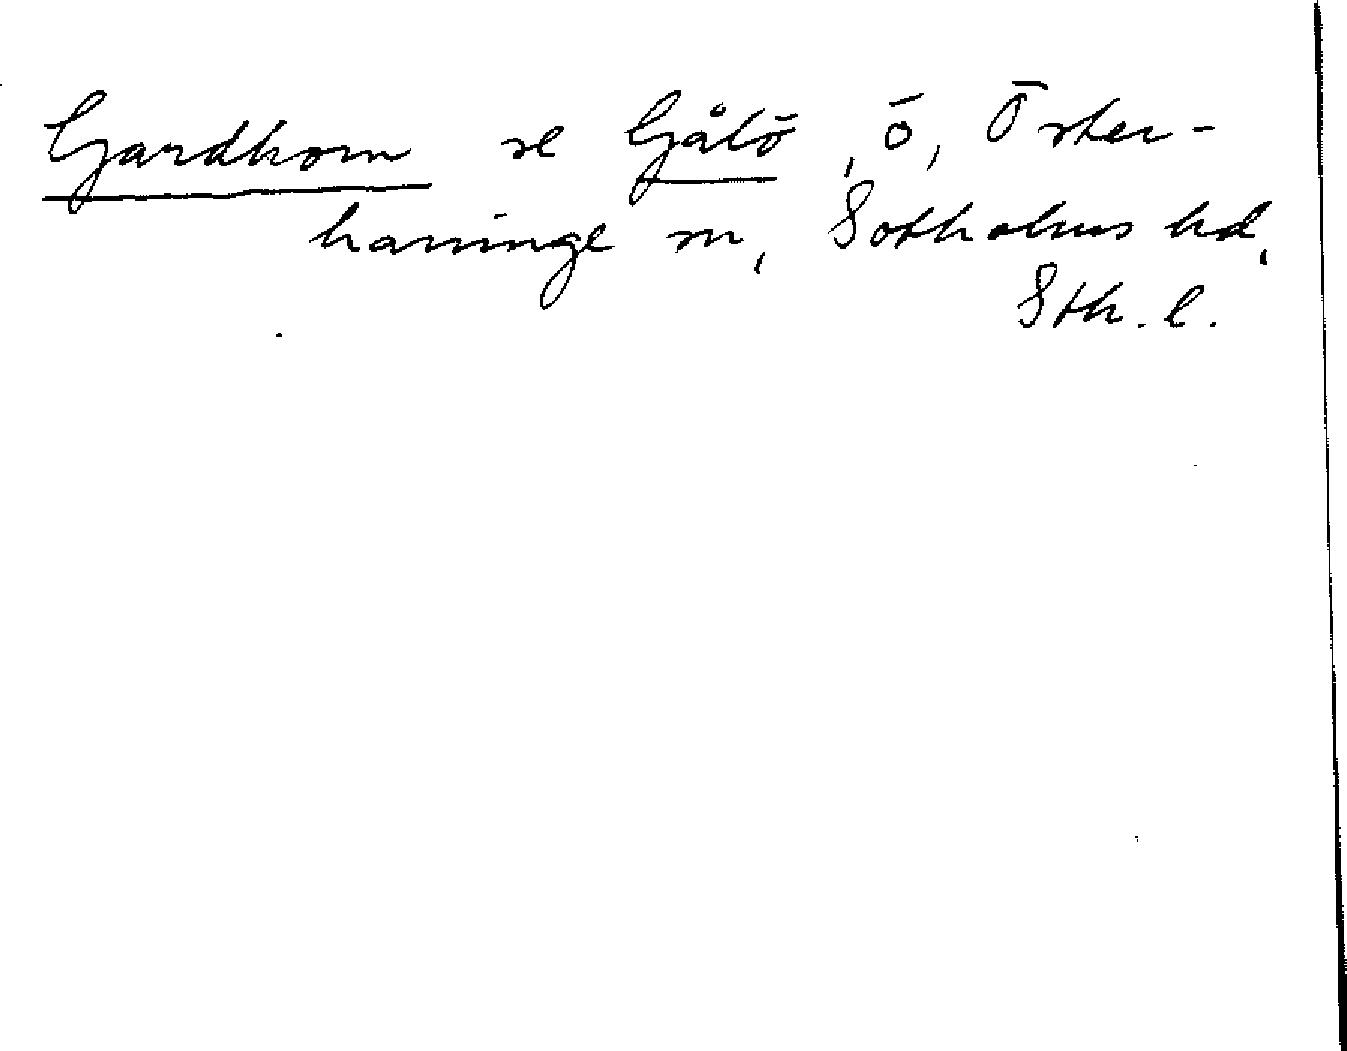 Gardhorn se Gålö, ö, Öster-
haninge sn, Sotholms hd,
Sth. l.